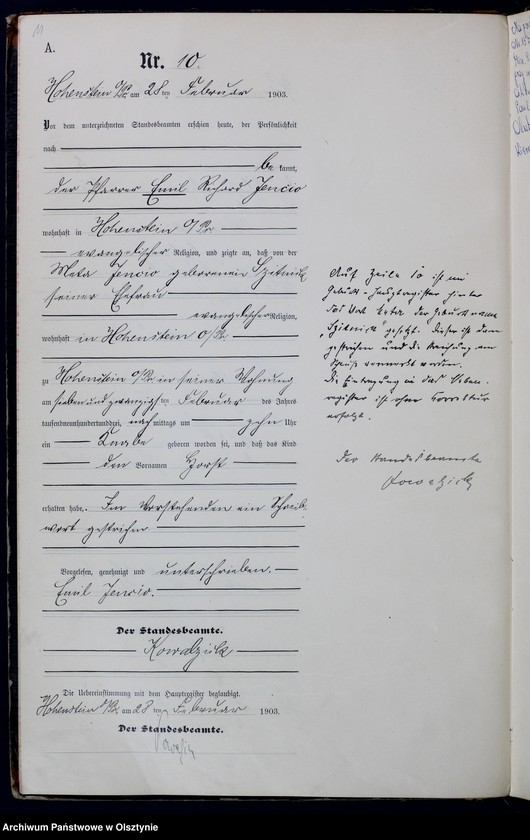 11
A.
Nr. 10.
Hohenstein O/Pr. am 28 ten Februar 1903.
Vor dem unterzeichneten Standesbeamten erschien heute, der Persönlichkeit
nach
be kannt,
der Pfarrer Emil Richard Jencio
wohnhaft in Hohenstein O/Pr.
evangelischer Religion, und zeigte an, daß von der
Meta Jencio geborenen Czitnick
seiner Ehefrau
evangelischer Religion,
wohnhaft in Hohenstein O/Pr.
zu Hohenstein O/Pr. in seiner Wohnung
am sieben und zwanzigsten Februar des Jahres
tausendneunhundertunddrei, nachmittags um zehn Uhr
ein Knabe geboren worden sei, und daß das Kind
den Vornamen Horst
erhalten habe. Im Vorstehenden ein Schreib-
wort gestrichen
Vorgelesen, genehmigt und unterschrieben.
Emil Jencio.
Der Standesbeamte.
Kowalzick
Die Uebereinstimmung mit dem Hauptregister beglaubigt.
Hohenstein O/Pr. am 28 ten Februar 1903.
Der Standesbeamte.
Auf Zeile 10 ist im
Geburts-Hauptregister hinter
das Wort der Geburtsname
gesetzt. Dieser ist dann
gestrichen und die Streichung am
vermerkt worden.
Die Eintragung in das Neben-
register ist ohne Korrektur
erfolgt.
Der Standesbeamte
Kowalzick
Archiwum Państwowe w Olsztynie